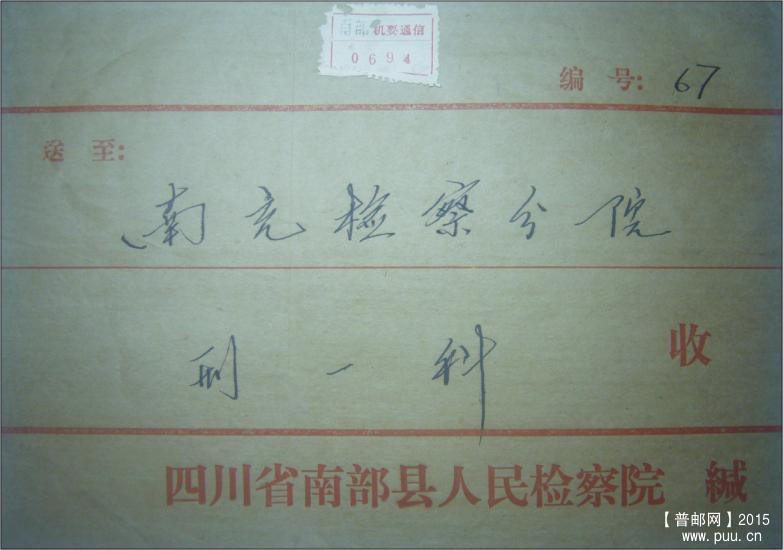 南部机要通信
0694
编 号: 67
送 至:
南充检察分院
刑一科 收
四川省南部县人民检察院 缄
【普邮网】2015
www.puu.cn